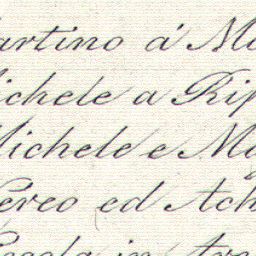 artino á M
ichele a Rip
Michele e M
ereo ed Ach
in Ar